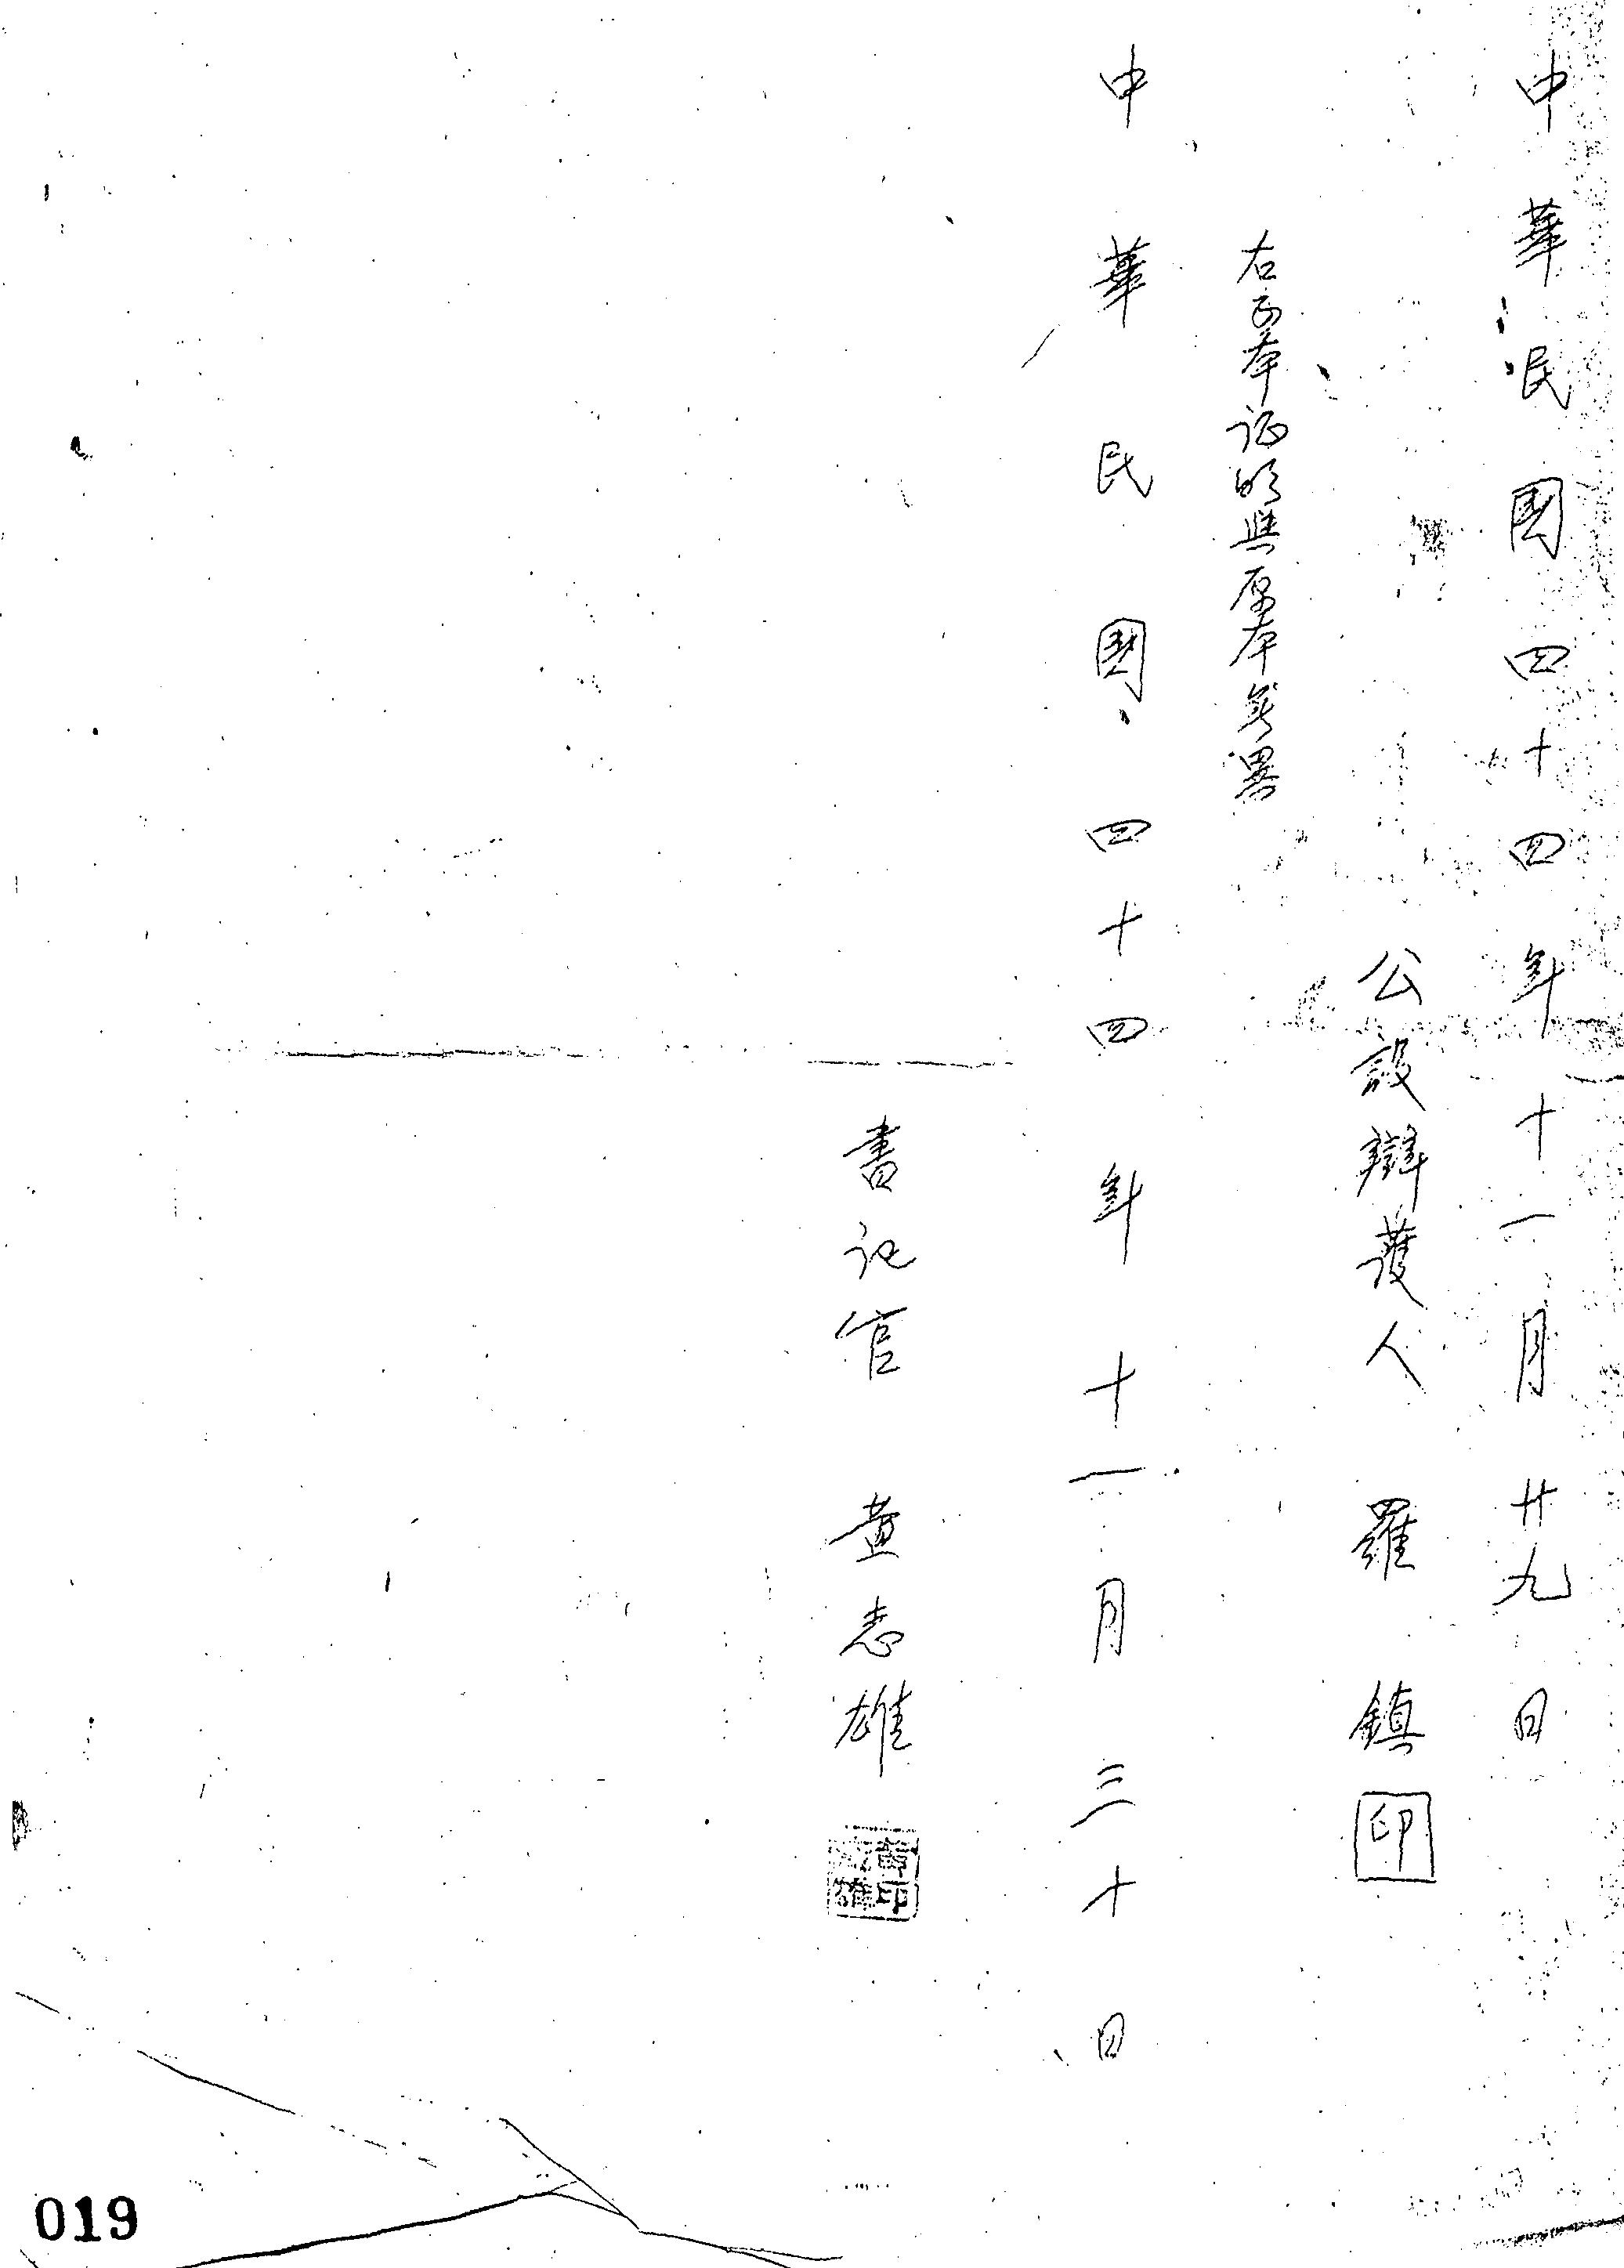 中華民國四十四年十一月廿九日
公設辯護人 羅鎮 印
右正本證明與原本無異
中華民國四十四年十一月三十日
書記官 黃志雄
黃印志雄
019